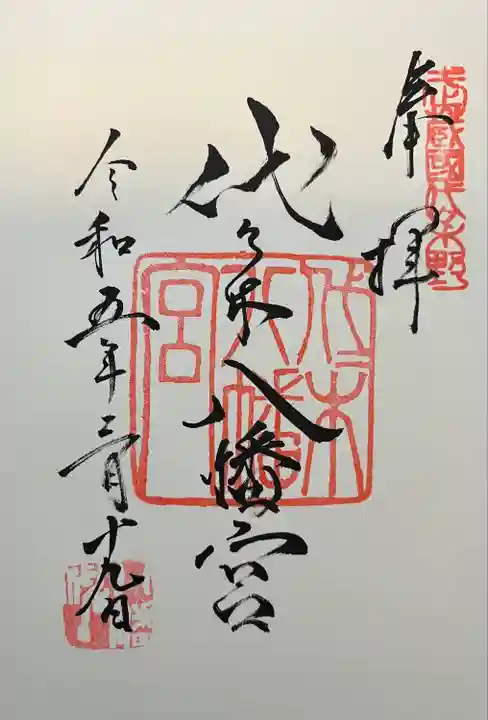 武蔵国代々木野
奉拝
代々木八幡宮
代々木
八幡
宮
令和五年三月十九日